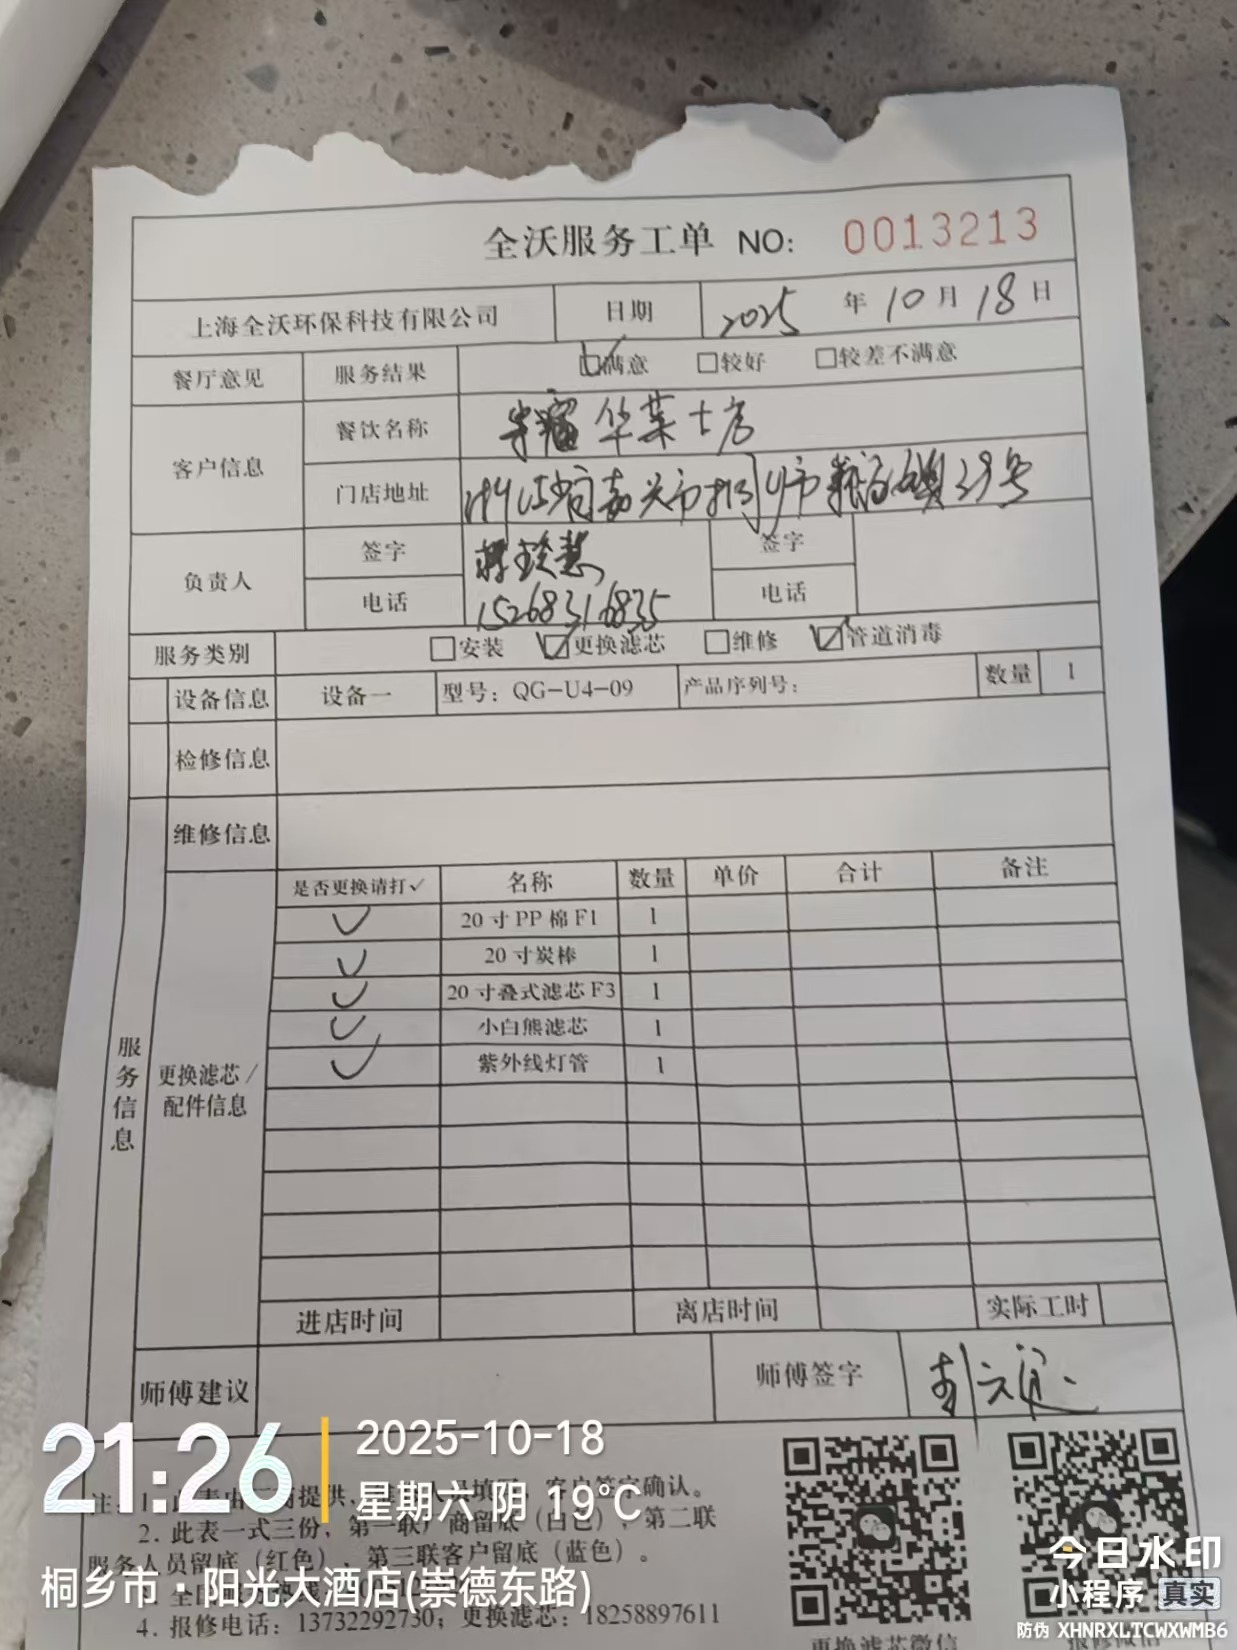 全沃服务工单 NO: 0013213
上海全沃环保科技有限公司 日期 2025 年 10 月 18 日
餐厅意见 服务结果 ☑满意 □较好 □较差不满意
客户信息 餐饮名称 华莱士店
门店地址 浙江省嘉兴市桐乡市 39号
负责人 签字 签字
电话 15268316835 电话
服务类别 □安装 ☑更换滤芯 □维修 ☑管道消毒
设备信息 设备一 型号: QG-U4-09 产品序列号: 数量 1
检修信息
维修信息
是否更换请打✓ 名称 数量 单价 合计 备注
✓ 20寸PP棉F1 1
✓ 20寸炭棒 1
✓ 20寸叠式滤芯F3 1
✓ 小白熊滤芯 1
✓ 紫外线灯管 1
服务信息
更换滤芯/
配件信息
进店时间 离店时间 实际工时
师傅建议 师傅签字
注: 1. 客户签字确认。
2. 此表一式三份, 第一联厂商留底(白色), 第二联
服务人员留底(红色), 第三联客户留底(蓝色)。
4. 报修电话: 13732292730; 更换滤芯: 18258897611
更换滤芯微信
21:26
2025-10-18
星期六 阴 19°C
桐乡市·阳光大酒店(崇德东路)
今日水印
小程序 真实
防伪 XHNRXLTCWXWMB6